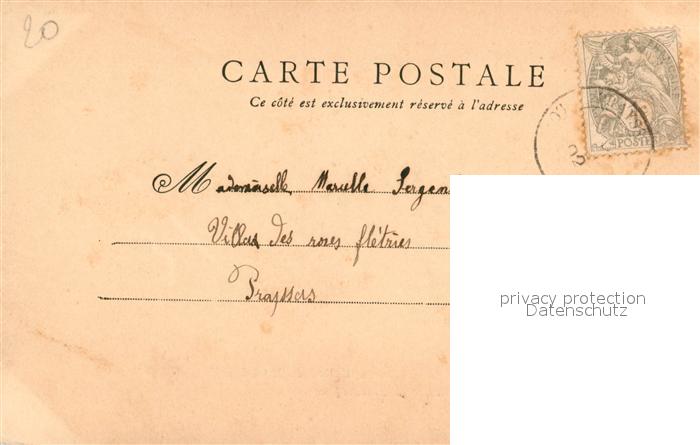 20
CARTE POSTALE
Ce côté est exclusivement réservé à l'adresse
POSTE
Mademoiselle Marcelle Sergen
Villa des roses flétries
privacy protection
Datenschutz